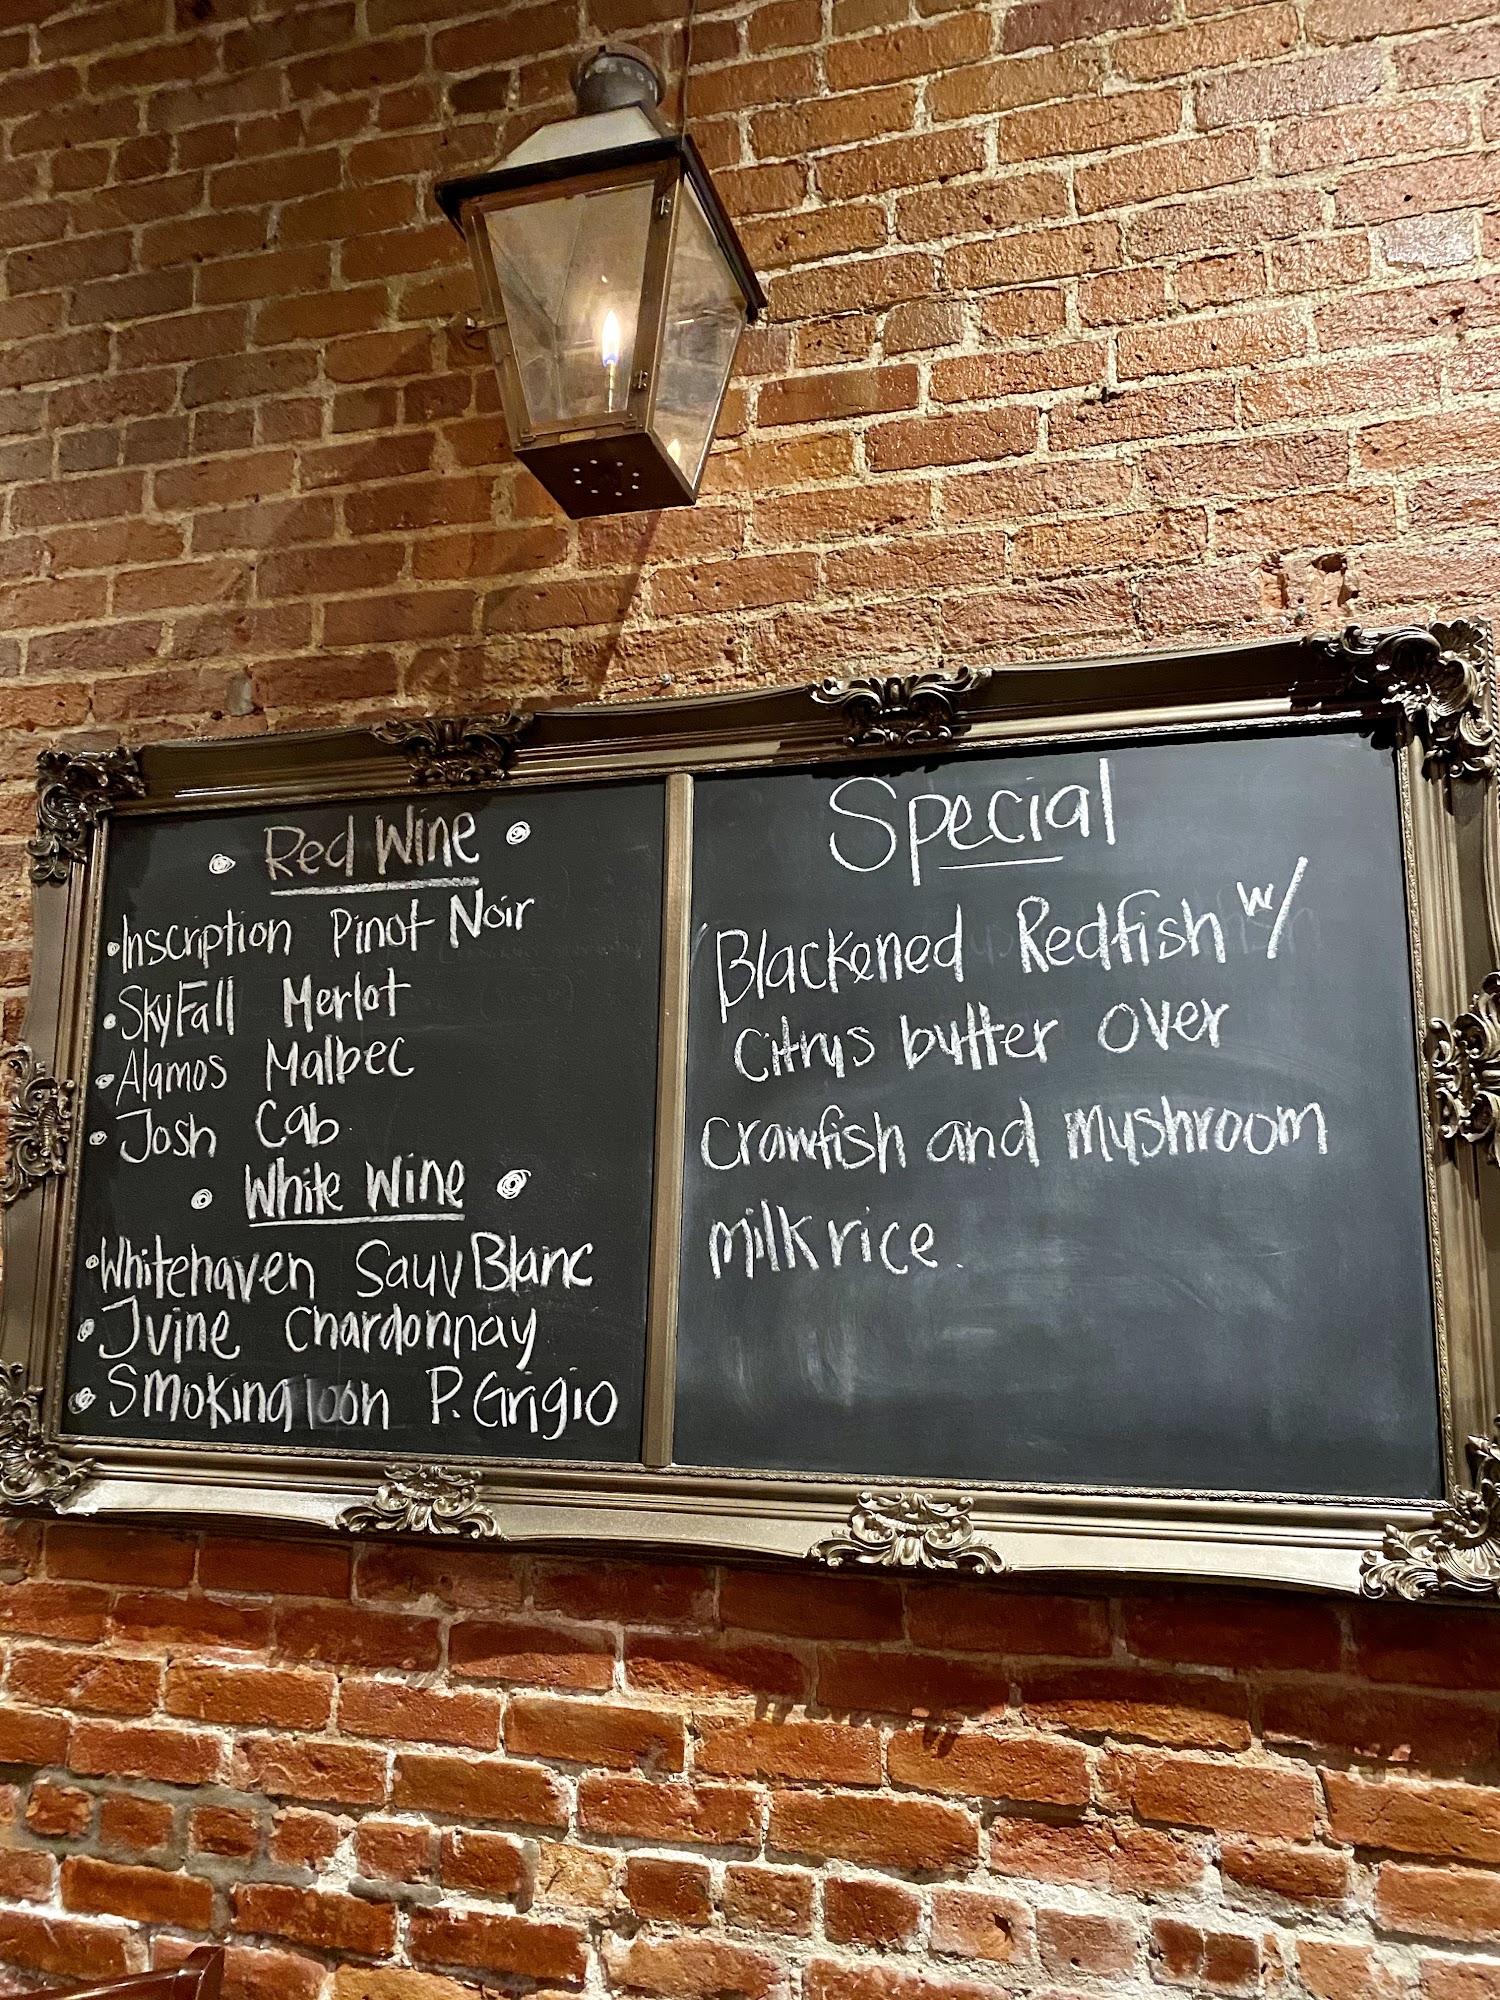 Red Wine
Inscription Pinot Noir
SkyFall Merlot
Alamos Malbec
Josh Cab
White Wine
Whitehaven Sauv Blanc
Jvine Chardonnay
Smoking loon P. Grigio
Special
Blackened Redfish w/
Citrus butter over
Crawfish and Mushroom
milk rice.